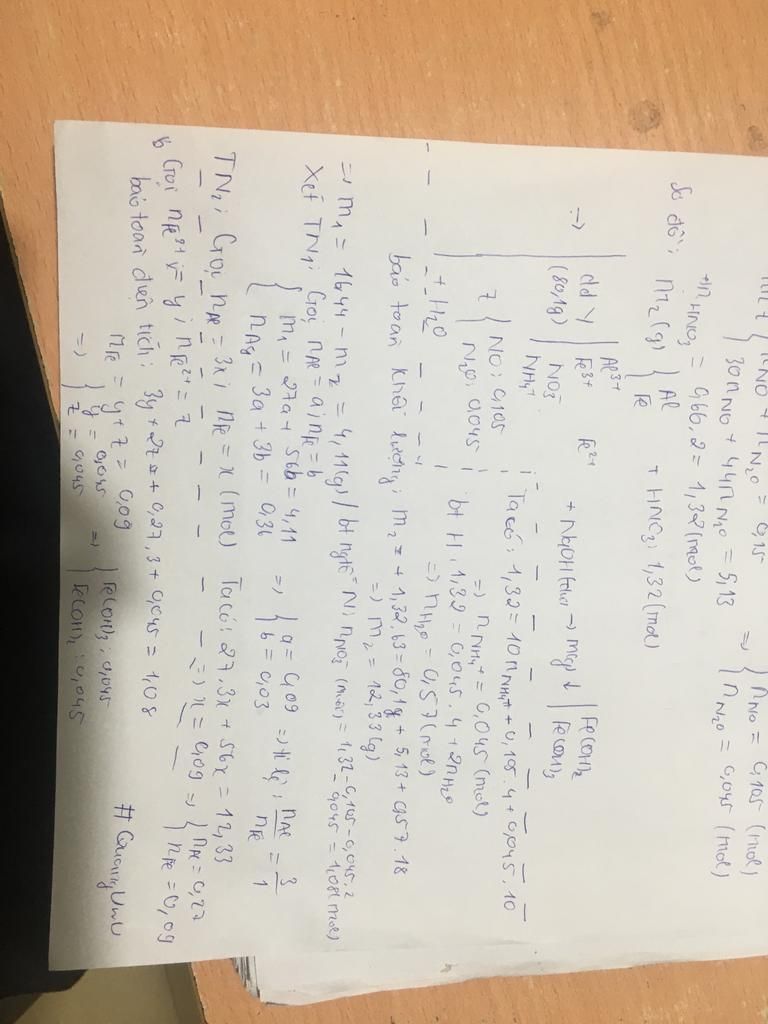 nNO + nN2O = 0,15
30nNO + 44nN2O = 5,13
=> { nNO = 0,105 (mol)
nN2O = 0,045 (mol)
+nHNO3 = 0,66.2 = 1,32 (mol)
Sơ đồ: m2(g) { Al Fe + HNO3: 1,32 (mol)
-> dd Y (80,1g) { Al3+ Fe3+ Fe2+ NH4+ NO3-
+ NaOH (dư) -> m(g) ↓ | Fe(OH)2 Fe(OH)3
Z { NO: 0,105
N2O: 0,045
+ H2O
Ta có: 1,32 = 10nNH4+ + 0,105.4 + 0,045.10
=> nNH4+ = 0,045 (mol)
bt H: 1,32 = 0,045.4 + 2nH2O
=> nH2O = 0,57 (mol)
bảo toàn khối lượng: m2 + 1,32.63 = 80,1 + 5,13 + 0,57.18
=> m2 = 12,33 (g)
=> m1 = 16,44 - m2 = 4,11 (g) / bt ngtố N: nNO3- (muối) = 1,32 - 0,105 - 0,045.2 - 0,045 = 1,08 (mol)
Xét TN1: Gọi nAl = a; nFe = b
{ m1 = 27a + 56b = 4,11
nAg = 3a + 3b = 0,36
=> { a = 0,09
b = 0,03
=> tỉ lệ: nAl/nFe = 3/1
TN2: Gọi nAl = 3x; nFe = x (mol) Ta có: 27.3x + 56x = 12,33
=> x = 0,09 => { nAl = 0,27
nFe = 0,09
Gọi nFe3+ = y; nFe2+ = z
bảo toàn điện tích: 3y + 2z + 0,27.3 + 0,045 = 1,08
nFe = y + z = 0,09
=> { y = 0,045
z = 0,045
=> { Fe(OH)3: 0,045
Fe(OH)2: 0,045